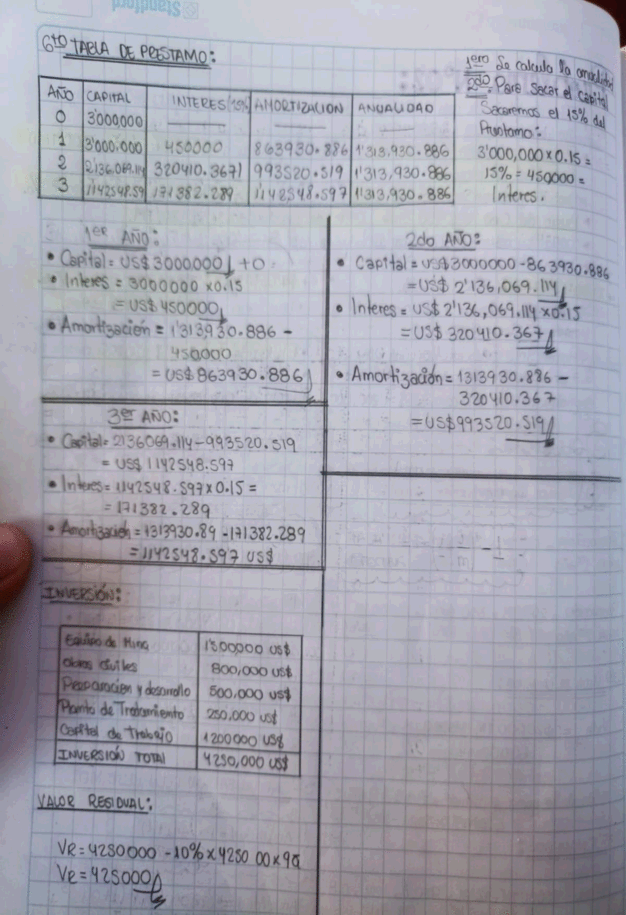 Standford
6to TABLA DE PRESTAMO:
1ero Se calcula la anualidad
2do Para Sacar el Capital
Sacaremos el 15% del
Prestamo:
3'000,000 x 0.15 =
15% = 450000 =
Interes.
AÑO CAPITAL INTERES (15%) AMORTIZACION ANUALIDAD
0 3'000000
1 3'000.000 450000 863930.886 1'313,930.886
2 2'136,069.114 320410.3671 993520.519 1'313,930.886
3 1142548.59 171382.289 1'142548.597 1'313,930.886
1er AÑO:
• Capital = US$ 3000000 + 0
• Interes = 3000000 x 0.15
= US$ 450000
• Amortizacion = 1'313,930.886 -
450.000
= US$ 863930.886
2do AÑO:
• Capital = US$ 3000000 - 863930.886
= US$ 2'136,069.114
• Interes = US$ 2'136,069.114 x 0.15
= US$ 320410.367
• Amortización = 1313930.886 -
320410.367
= US$ 993520.519
3er AÑO:
• Capital = 2136069.114 - 993520.519
= US$ 1142548.597
• Interes = 1142548.597 x 0.15 =
= 171382.289
• Amortización = 1313930.89 - 171382.289
= 1142548.597 US$
INVERSIÓN:
Equipo de Mina 1'500000 US$
Obras civiles 800,000 US$
Preparacion y desarrollo 500,000 US$
Planta de Tratamiento 250,000 US$
Capital de Trabajo 1200000 US$
INVERSIÓN TOTAL 4250,000 US$
VALOR RESIDUAL:
VR = 4250000 - 10% x 4250 00 x 9
VR = 425000